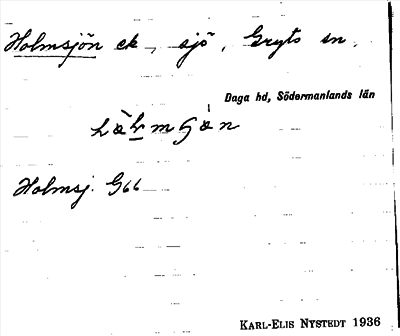 Holmsjön ek, sjö, Gryts sn.
Daga hd, Södermanlands län
Holmsj. G66
KARL-ELIS NYSTEDT 1936